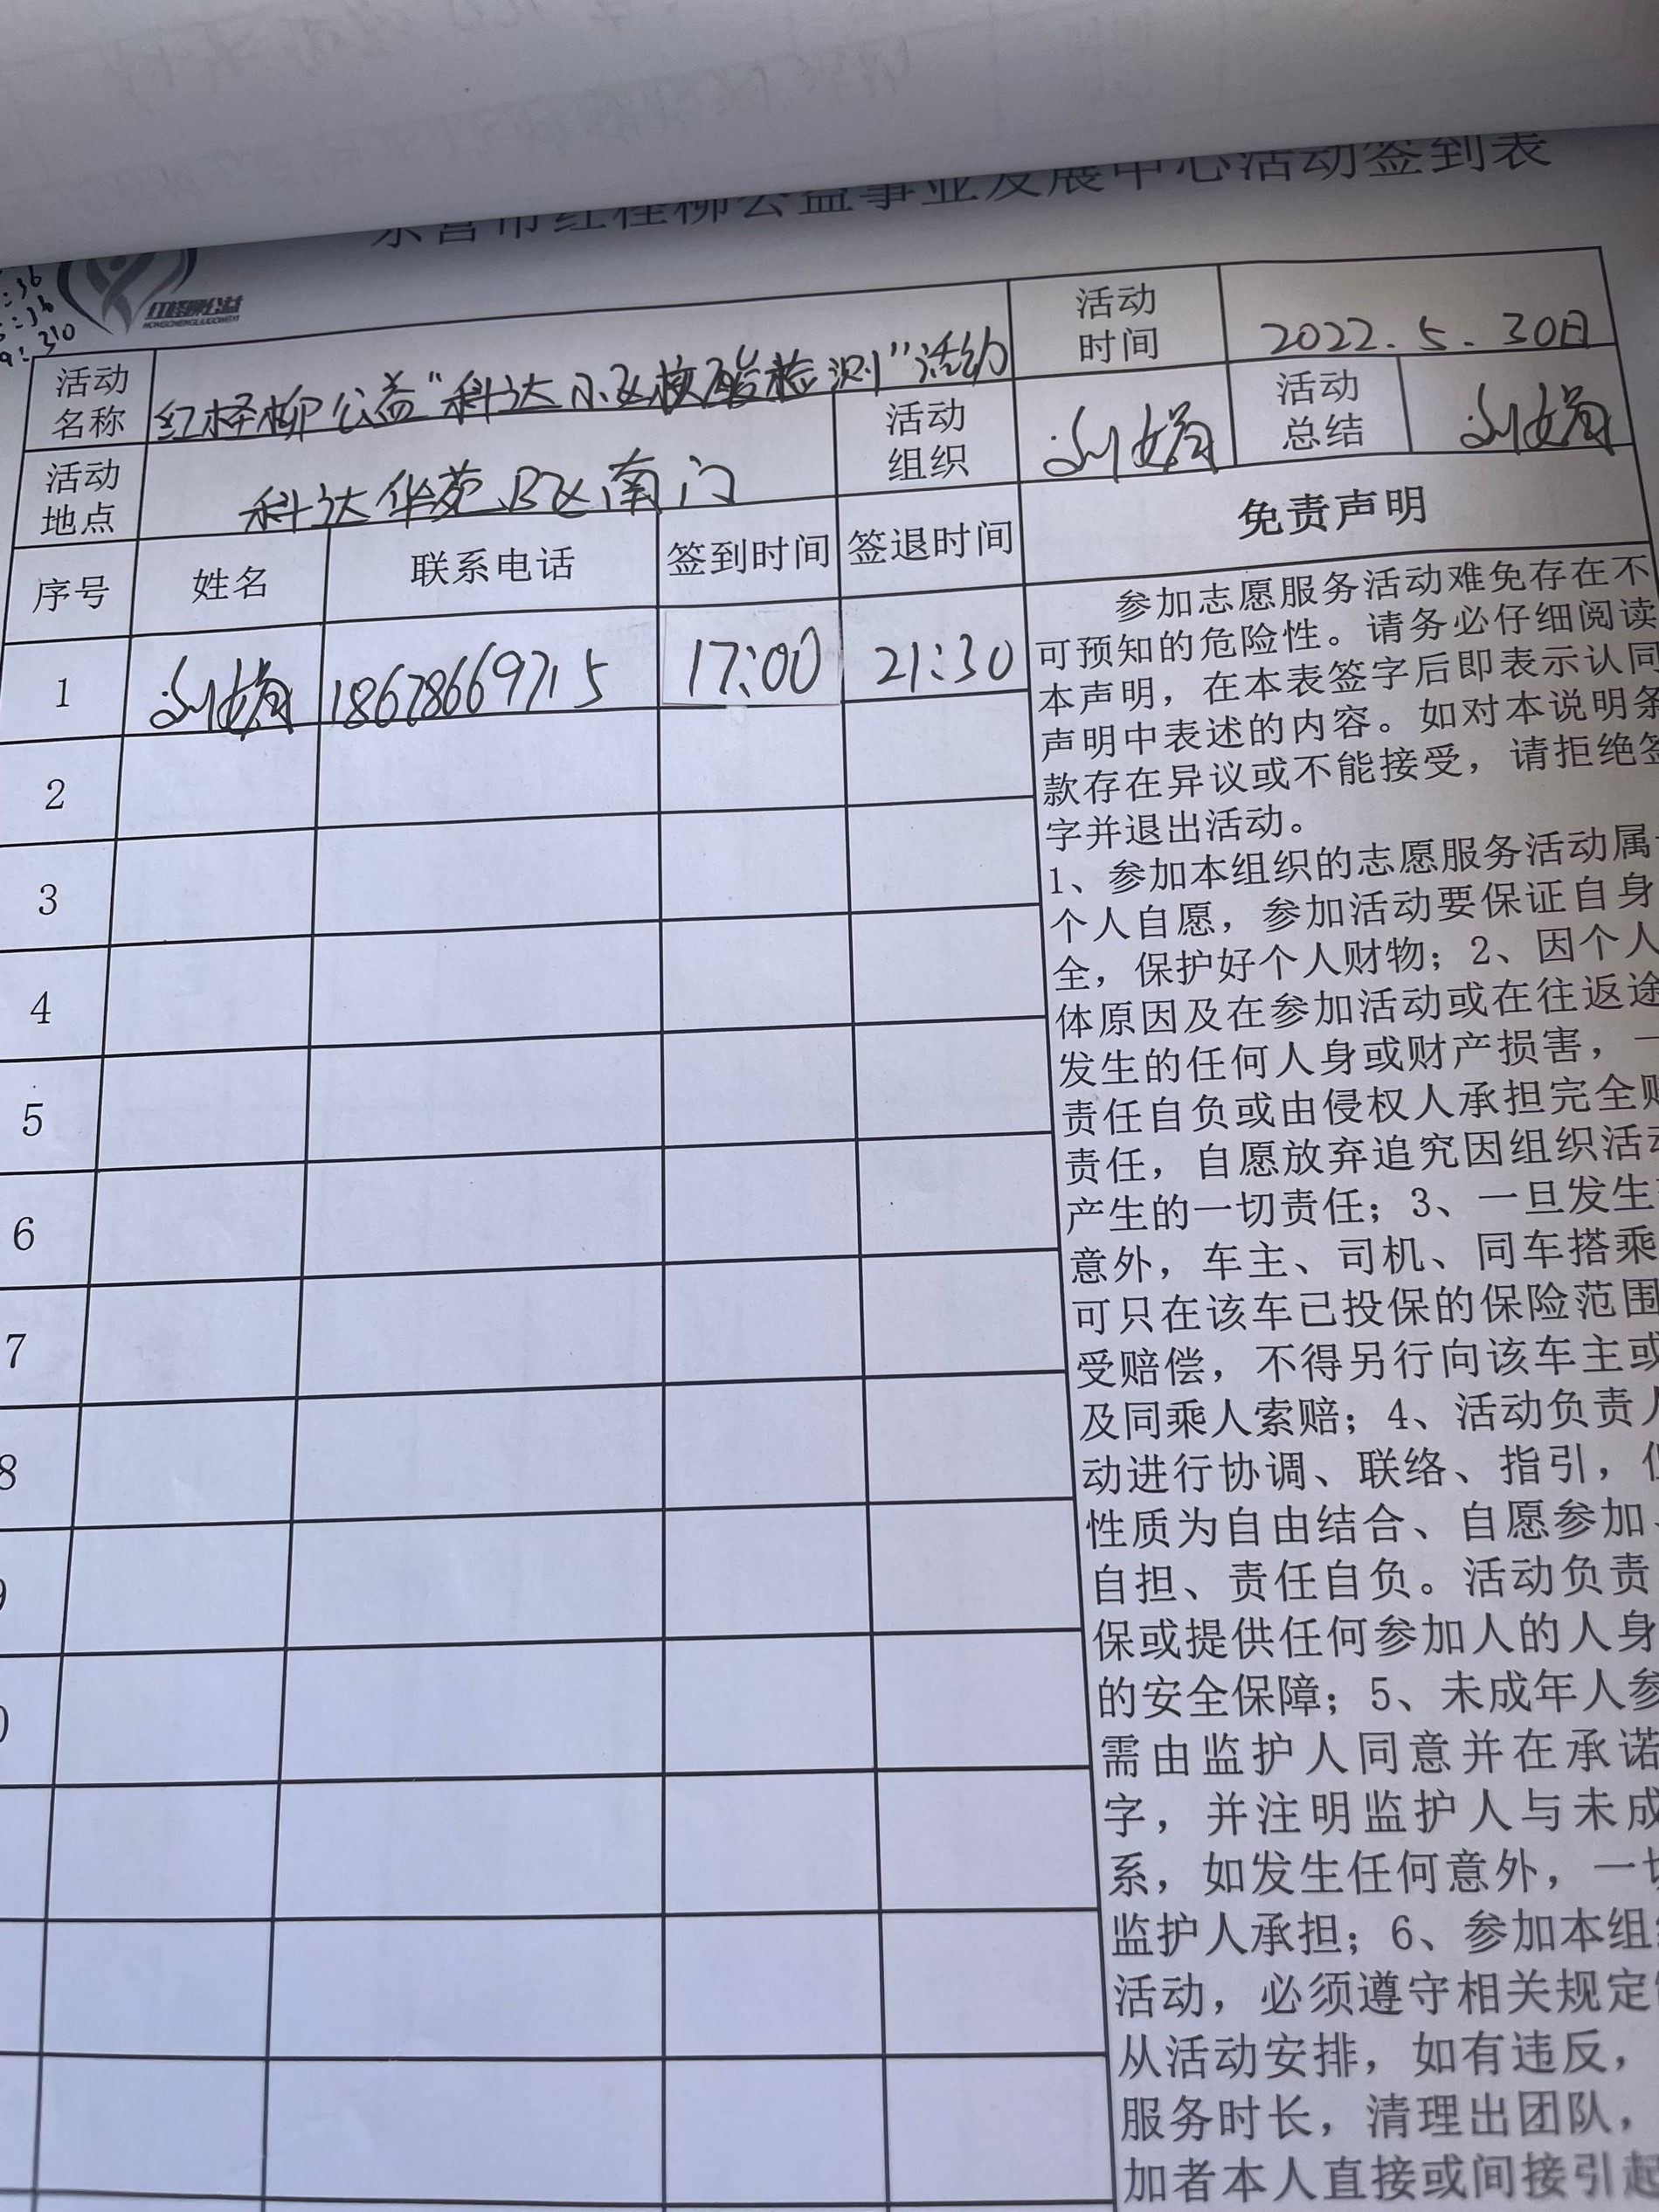 东营市红柽柳公益事业发展中心活动签到表
红柽柳公益
活动名称
红柽柳公益“科达小区核酸检测”活动
活动时间
2022.5.30日
活动地点
科达华苑B区南门
活动组织
刘娟
活动总结
刘娟
序号 姓名 联系电话 签到时间 签退时间 免责声明
1 刘娟 18678669715 17:00 21:30
2
3
4
5
6
7
8
参加志愿服务活动难免存在不
可预知的危险性。请务必仔细阅读
本声明，在本表签字后即表示认同
声明中表述的内容。如对本说明条
款存在异议或不能接受，请拒绝签
字并退出活动。
1、参加本组织的志愿服务活动属
个人自愿，参加活动要保证自身
全，保护好个人财物；2、因个人
体原因及在参加活动或在往返途
发生的任何人身或财产损害，一
责任自负或由侵权人承担完全赔
责任，自愿放弃追究因组织活动
产生的一切责任；3、一旦发生
意外，车主、司机、同车搭乘
可只在该车已投保的保险范围
受赔偿，不得另行向该车主或
及同乘人索赔；4、活动负责人
动进行协调、联络、指引，但
性质为自由结合、自愿参加、
自担、责任自负。活动负责
保或提供任何参加人的人身
的安全保障；5、未成年人参
需由监护人同意并在承诺
字，并注明监护人与未成
系，如发生任何意外，一切
监护人承担；6、参加本组织
活动，必须遵守相关规定
从活动安排，如有违反，
服务时长，清理出团队，
加者本人直接或间接引起